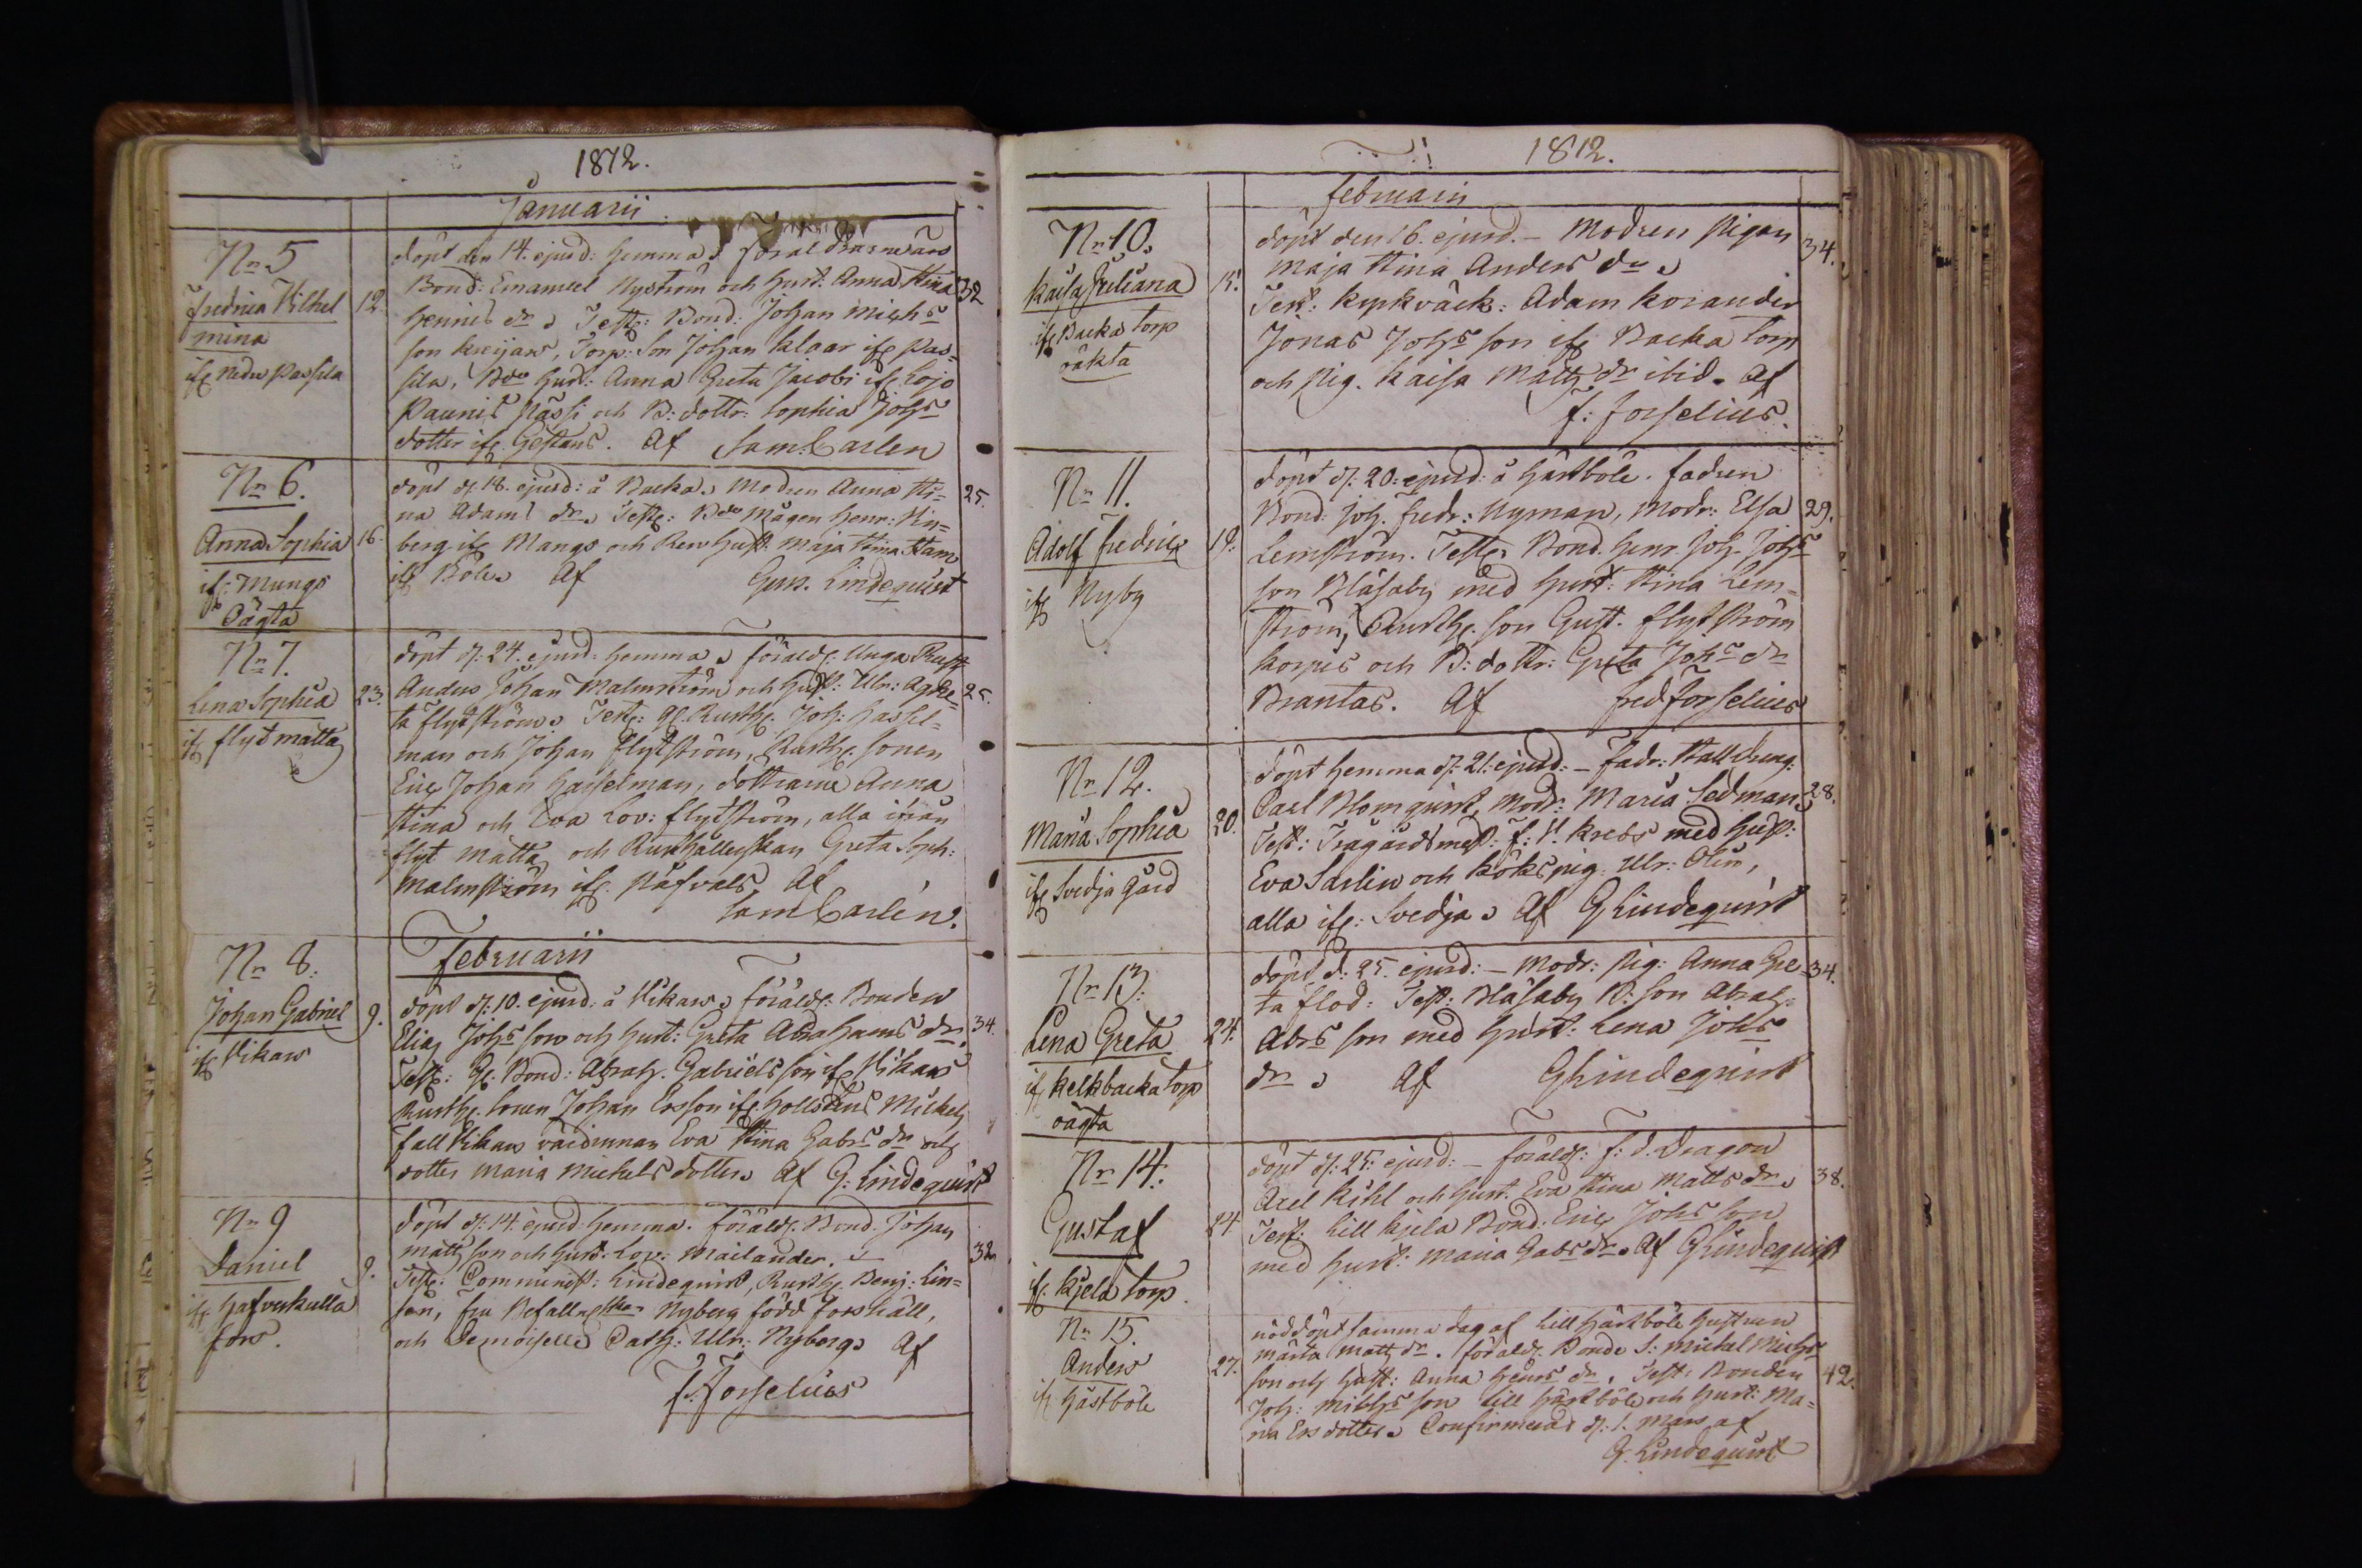 1812.
Januarii
Nr 5
Fredrica Vilhel
mina
ifr. nedre Passila
12.
döpt den 14. ejusd: hemma.
Bond: Emanuel Nyström och hust: Anna Stina
32
Henriks dr. Test: Bond: Johan Michs
son Torp: Son Johan Klaar ifr. Pas=
sila, hust: Anna Greta Jacobs ifr. Lojo
Paunis och B: dottr: Sophia Johs
dotter ifr. Af Sam: Carlen
Nr 6.
Anna Sophia
ifr: Mungs
Oägta
16.
döpt d: 18. ejusd: å Backa. Modren Anna Sti=
25.
na Adams dr. Test: Mågen Henr: Lin=
berg ifr. Mangs och hust: Maja Stina
ifr Böle. Af Gus. Lindequist
Nr 7.
Lena Sophia
ifr flyt matts
23.
döpt d: 24. ejusd: hemma. Föräldr: Unga Rusth
Anders Johan Malmström och hust: Ulr: Agne=
25.
ta Flytström. Test: Rusth: Joh: Hassel=
man och Johan Flytström, Rusth: sonen
Eric Johan Hasselman, döttrarne Anna
Stina och Eva Lov: Flytström, alla ifrån
flyt matts och Rusthållerskan Greta Soph:
Malmström ifr. Påfvals. Af
Sam Carlén.
Februarii
Nr 8.
Johan Gabriel
ifr Vikars
9.
döpt d: 10. ejusd: å Vikars. Föräldr: Bonden
Elias Johs son och hust: Greta Abrahams dr.
34.
Test: Bond: Abrah. Gabriels son ifr Vikars
Rusth: sonen Johan Ersson ifr Michels
Vikars värdinnan Eva Stina Gabrs dr och
dotter Maria Michels dotter. Af G: Lindequist
Nr 9
Daniel
ifr Hafverkulla
fors.
9.
döpt d: 14. ejusd: hemma. Föräldr. Bond. Johan
Matts son och hust: Lov: Mailander.
32.
Test: Comminist: Lindequist, Rusth: Benj: Lin=
Fru Befallgskan Nyberg född Forshäll,
och Demoiselle Cath: Ulr: Nyberg. Af
F. Forselius
1812.
Februarii
Nr 10.
Kaisa Juliana
ifr Backas torp
oäkta
15.
döpt den 16. ejusd. – Modren Pigan
34.
Maja Stina Anders dr.
Test: Kyrkväck: Adam Korander
Jonas Johs son ifr Backa torp
och Pig. Kaisa Matts dr ibid. Af
F: Forselius.
Nr 11.
Adolf Fredric
ifr Nyby
19.
döpt d: 20: ejusd: å Hästböle. Fadren
Bond: Joh. Fredr: Nyman, Modr: Elsa
29.
Lemström. Test: Bond. Henr. Joh. Johs
son Blåsaby med hust: Stina Lem=
ström, Rusth: son Gust. Flytström
Korpis och B: dottr: Greta Johs dr
Brantas. Af Fred Forselius
Nr 12.
Maria Sophia
ifr Svedja gård
20.
döpt hemma d: 21: ejusd: – Fadr: Stalldreng:
Carl Blomqvist, Modr: Maria Sedman.
28.
Test: Trägårdsmäst: F: H. Krebs med hust:
Eva Sarlin och Kökspig: Ulr: Olin,
alla ifr: Svedja. Af G Lindequist
Nr 13.
Lena Greta
ifr Kelkbacka torp
oägta
24.
döpt d: 25. ejusd: – Modr: Pig: Anna Gre=
34.
ta Flod: Test: Blåsaby B: son Abrah:
Abrs son med hust: Lena Johs
dr. Af G Lindequist
Nr 14.
Gustaf
ifr. Kjela torp
24
döpt d: 25: ejusd: – Föräldr: f: d. Dragon
Axel Kihl och hust. Eva Stina Matts dr.
38.
Test: Lill Kjela Bond: Eric Johs son
med hust: Maria Gabrs dr. Af G Lindequist
Nr 15.
Anders
ifr Hästböle
27.
nöddöpt samma dag af Lill Hästböle hustrun
Märta Matts dr. Föräldr. Bonde S: Michel Michs
son och hust: Anna Henrs dr. Test: Bonden
42.
Joh: Michs son Lill Hästböle och hust: Ma=
ria Ersdotter. Confirmerad d: 1. Mars af
G. Lindequist